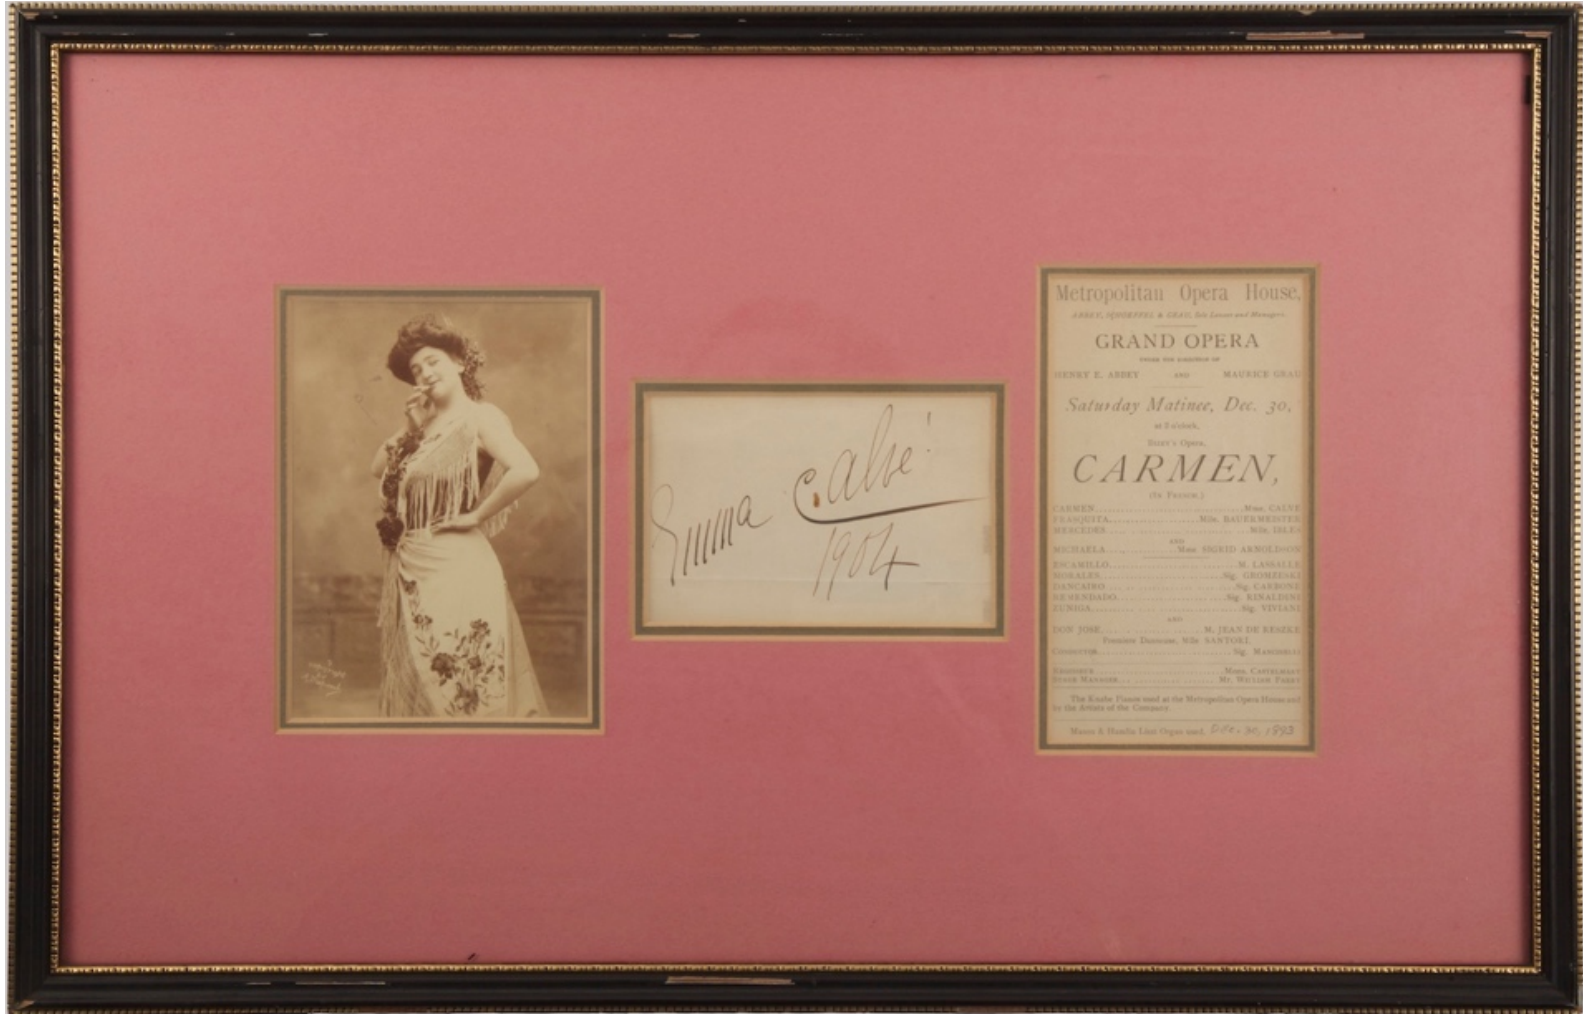 Emma Calvé
1904
Metropolitan Opera House,
ABBEY, SCHOEFFEL & GRAU, Sole Lessees and Managers.
GRAND OPERA
UNDER THE DIRECTION OF
HENRY E. ABBEY AND MAURICE GRAU
Saturday Matinee, Dec. 30,
at 2 o'clock,
BIZET'S Opera,
CARMEN,
(IN FRENCH.)
CARMEN..........Mme. CALVE
FRASQUITA..........Mlle. BAUERMEISTER
MERCEDES..........Mlle. IBLES
AND
MICHAELA..........Mme. SIGRID ARNOLDSON
ESCAMILLO..........M. LASSALLE
MORALES..........Sig. GROMZESKI
DANCAIRO..........Sig. CARBONE
REMENDADO..........Sig. RINALDINI
ZUNIGA..........Sig. VIVIANI
AND
DON JOSE..........M. JEAN DE RESZKE
Premiere Danseuse, Mlle. SANTORI.
CONDUCTOR..........Sig. MANCINELLI
REGISSEUR..........Mons. CASTELMARY
STAGE MANAGER..........Mr. WILLIAM PARRY
The Knabe Pianos used at the Metropolitan Opera House and
by the Artists of the Company.
Mason & Hamlin Liszt Organ used. Dec. 30, 1893